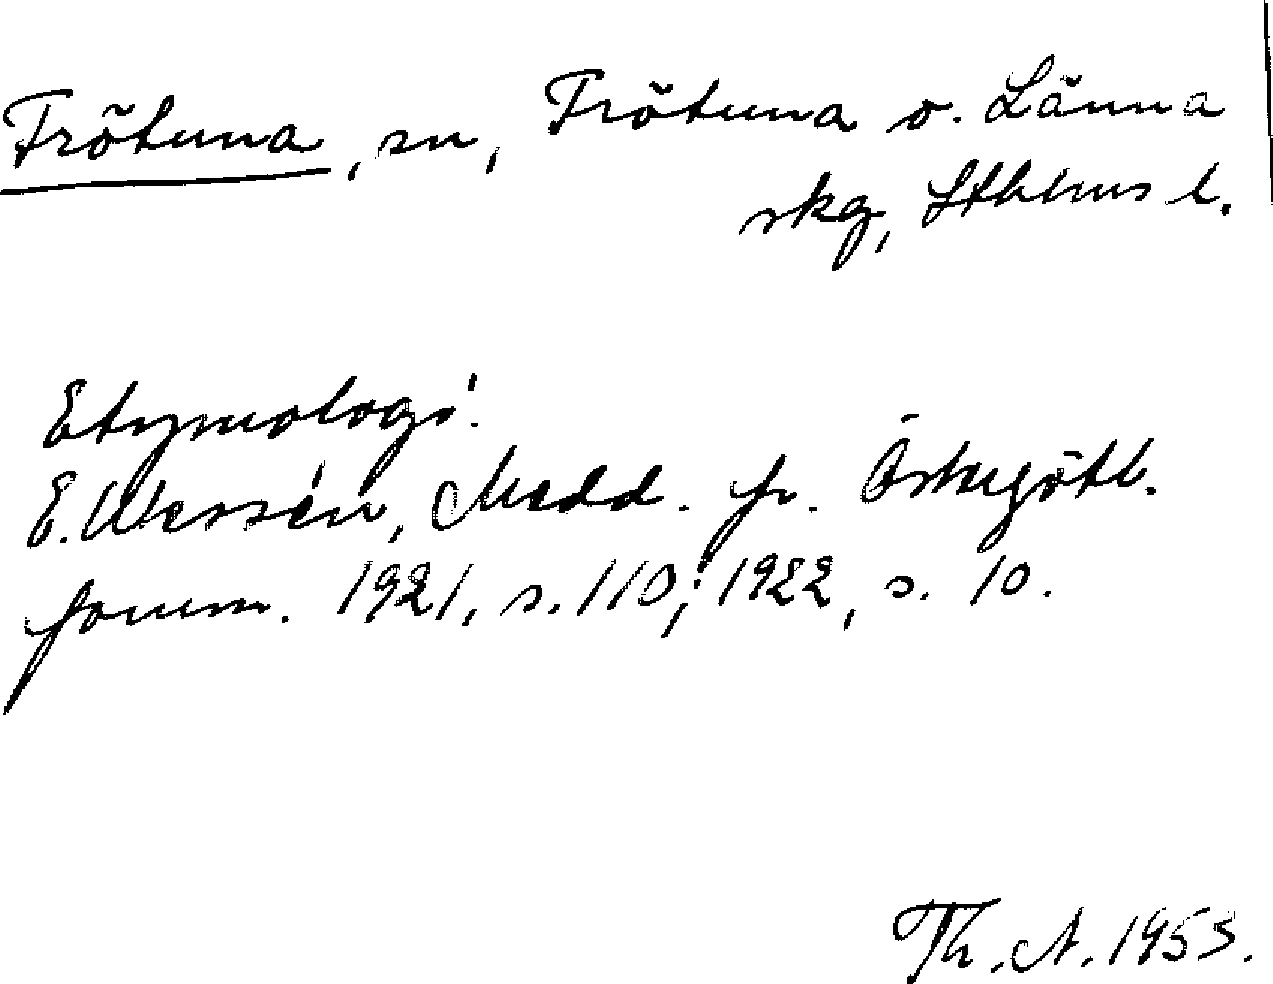 Frötuna, sn, Frötuna o. Länna
skg, Sthlms l.
Etymologi:
E. Wessén, Medd. fr. Östergötl.
fornm. 1921, s. 110; 1922, s. 10.
Th. A. 1953.